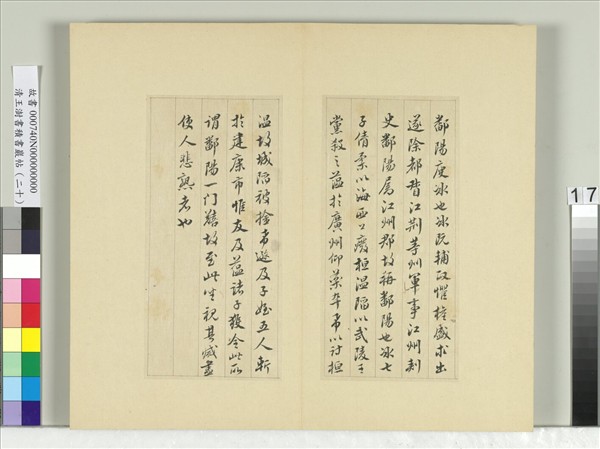 鄱陽庾冰也冰既輔政懼權盛求出
遂除都督江荆等州軍事江州刺
史鄱陽屬江州郡故稱鄱陽也冰七
子倩柔以海西公廢桓溫陷以武陵王
黨殺之蘊於廣州仰藥卒希以討桓
溫故城陷被擒希邈及子姪五人斬
於建康市惟友及蘊諸子獲全此所
謂鄱陽一门艱故至此坐視其滅盡
使人悲熟者也
故書 000740N000000000
清王澍書積書巖帖(二十)
17